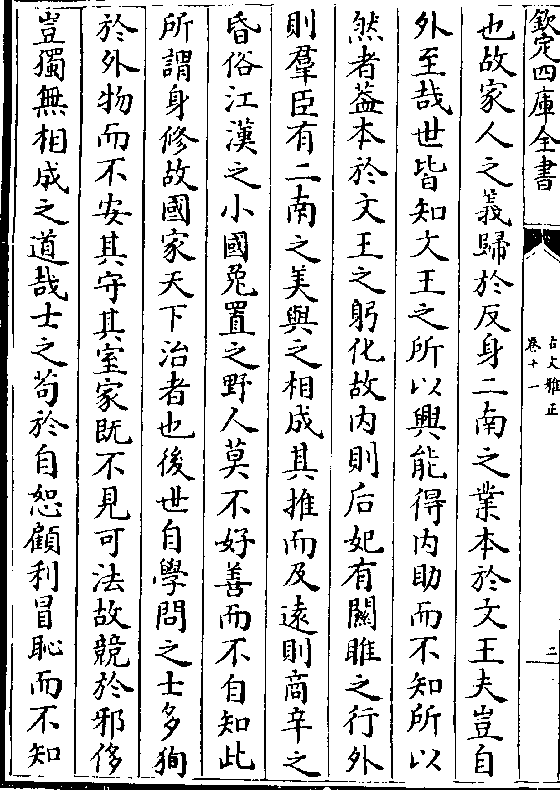 欽定四庫全書
古文雅正
卷十一
二
也故家人之義歸於反身二南之業本於文王夫豈自
外至哉世皆知文王之所以興能得内助而不知所以
然者葢本於文王之躬化故内則后妃有關雎之行外
則羣臣有二南之美與之相成其推而及逺則商辛之
昏俗江漢之小國兎罝之野人莫不好善而不自知此
所謂身修故國家天下治者也後世自學問之士多狥
於外物而不安其守其室家既不見可法故競於邪侈
豈獨無相成之道哉士之茍於自恕顧利冒恥而不知